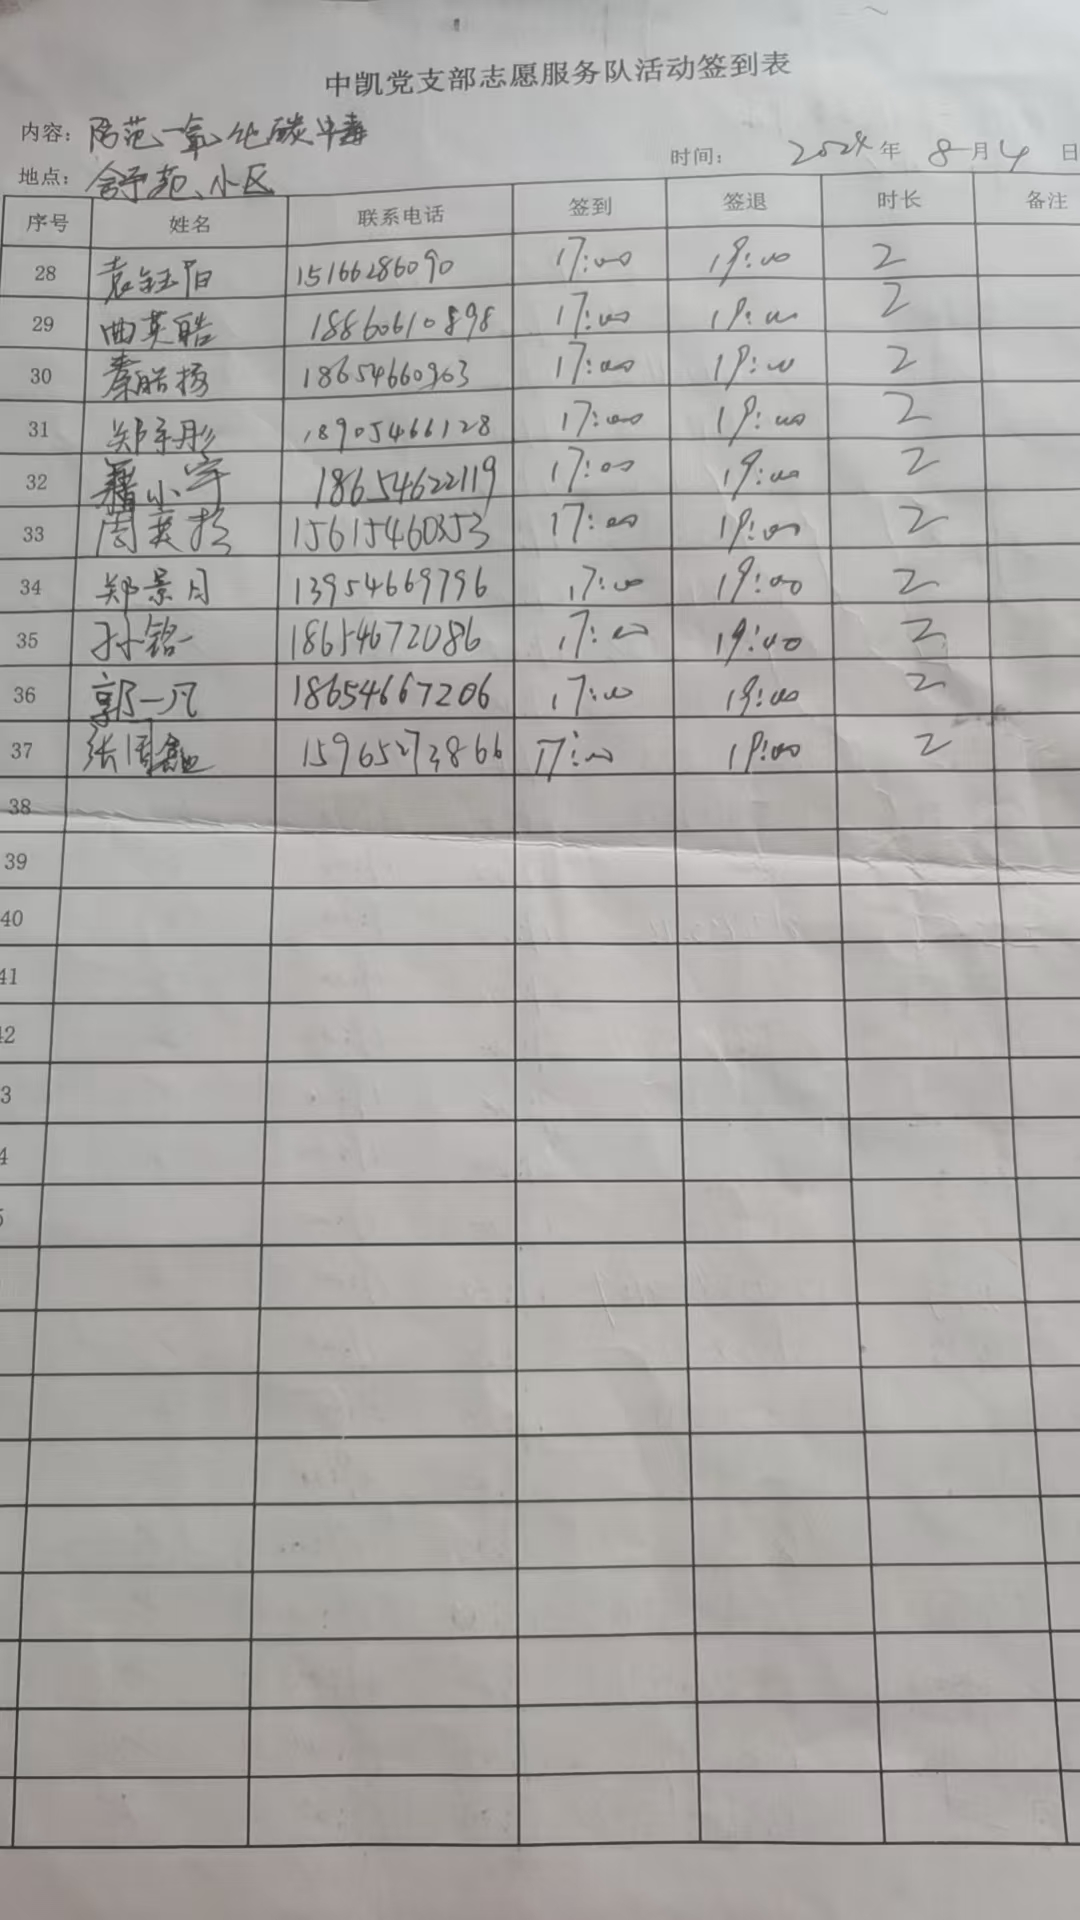 中凯党支部志愿服务队活动签到表
内容: 防范一氧化碳中毒
时间: 2024年 8月4日
地点: 舒苑小区
序号 姓名 联系电话 签到 签退 时长 备注
28 袁钰阳 15166286090 17:00 19:00 2
29 曲英皓 18860610898 17:00 19:00 2
30 秦皓扬 18654660963 17:00 19:00 2
31 郑宇彤 18905466128 17:00 19:00 2
32 小宇 18654622119 17:00 19:00 2
33 周英杉 15615460353 17:00 19:00 2
34 郑景月 13954669796 17:00 19:00 2
35 孙铭一 18654672086 17:00 19:00 2
36 郭一凡 18654667206 17:00 19:00 2
37 张国鑫 15965273866 17:00 19:00 2
38
39
40
41
42
3
4
5